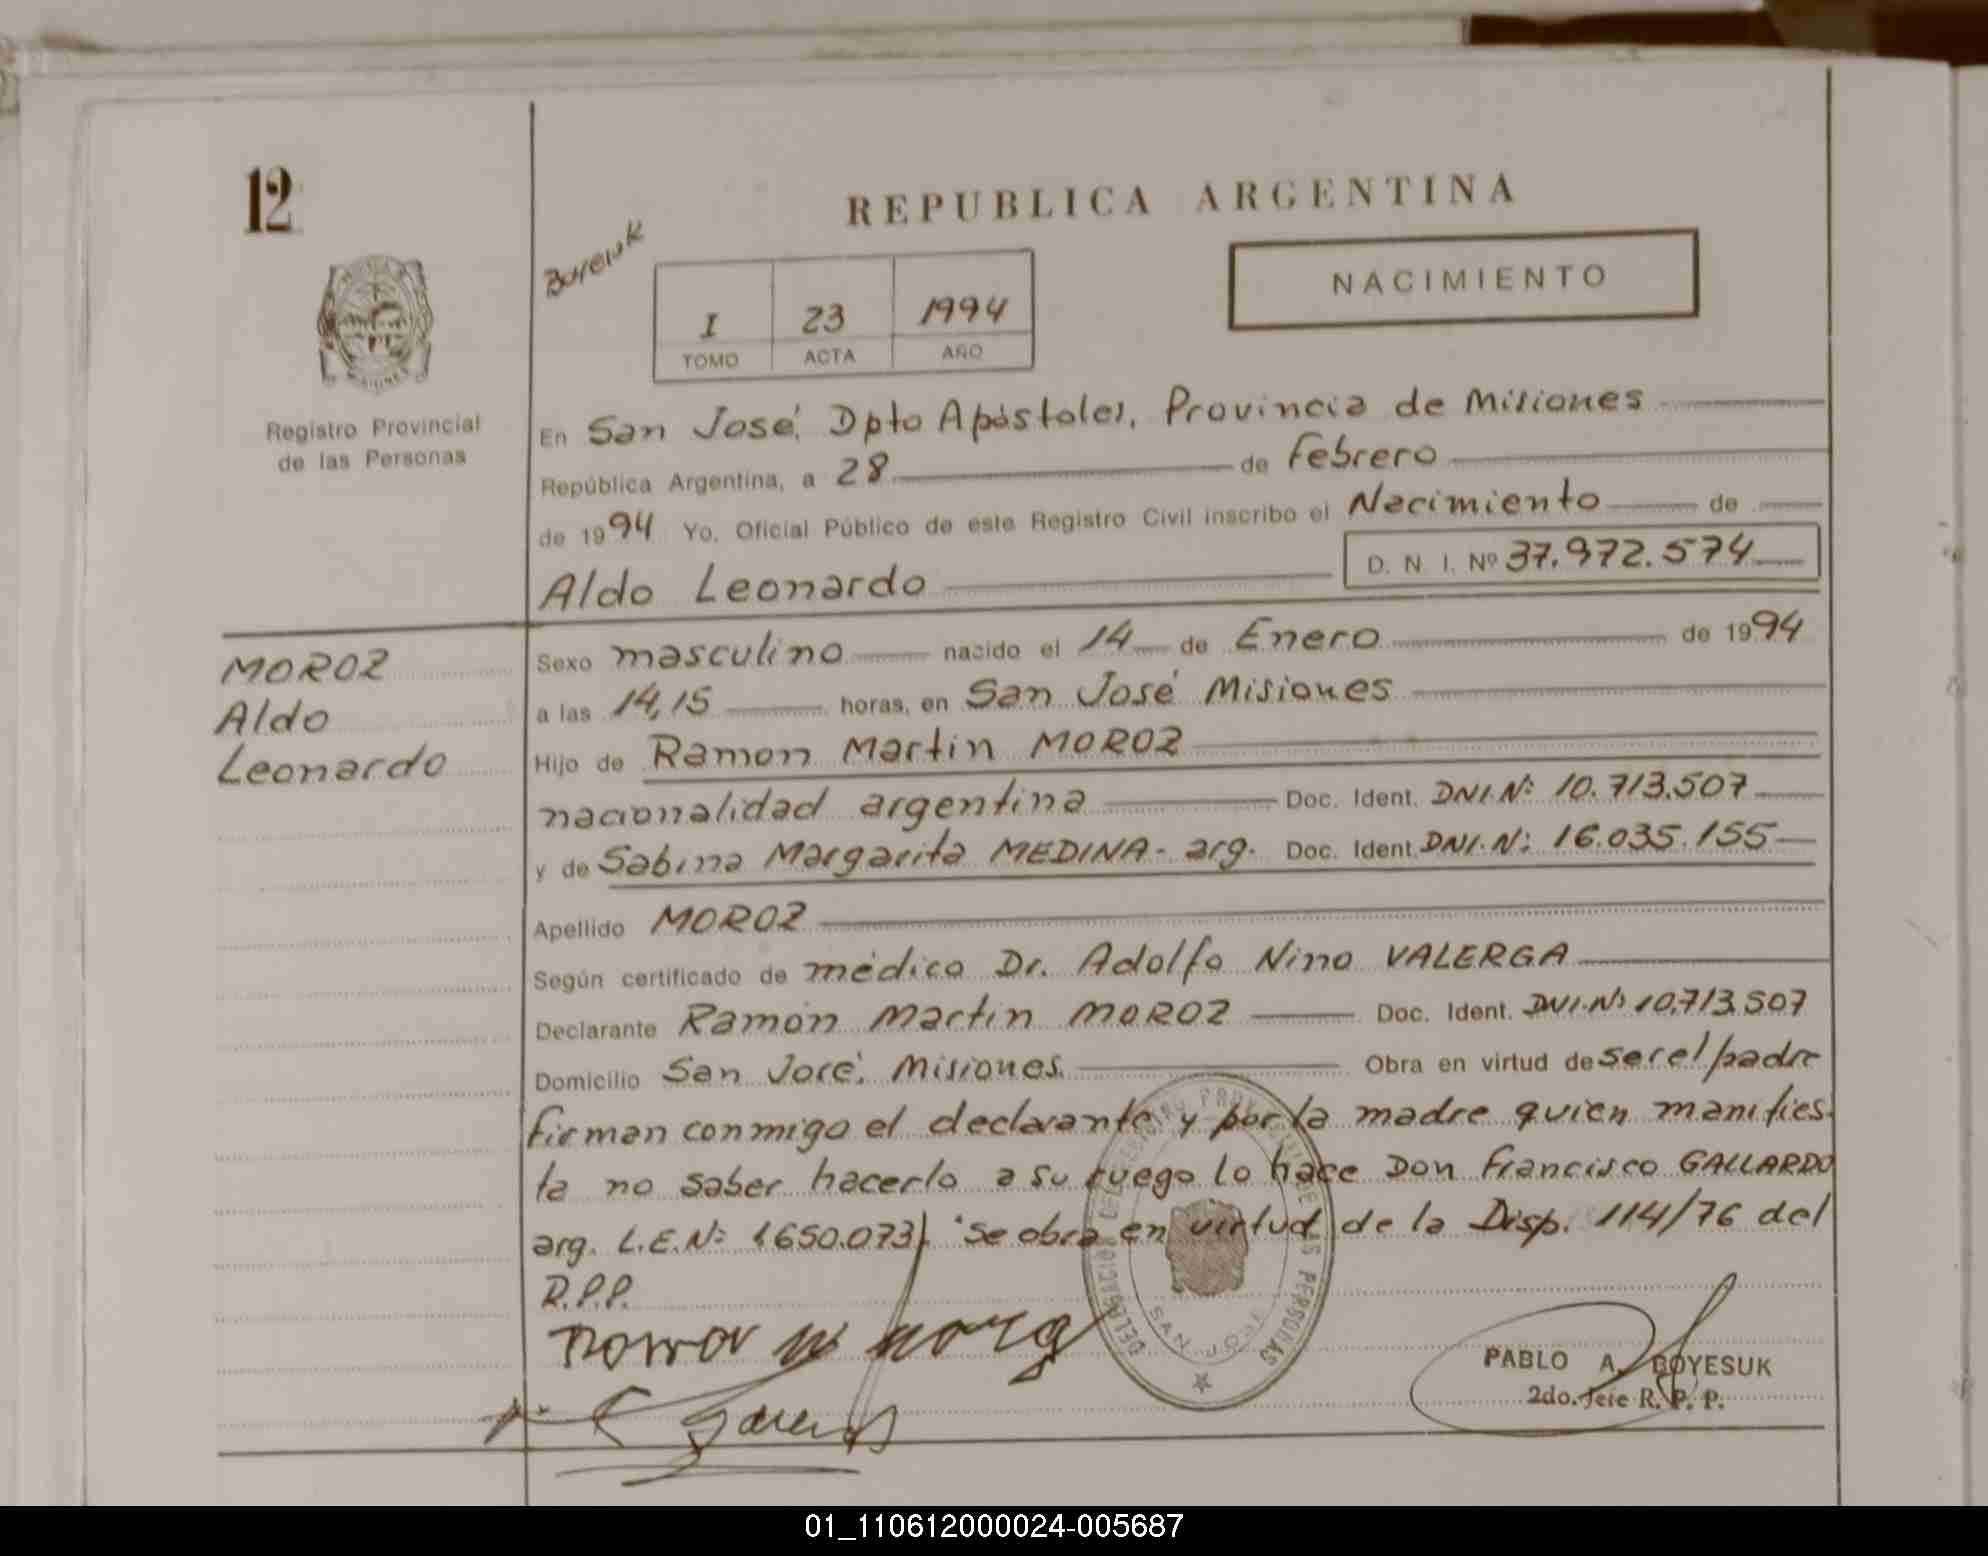 12
REPUBLICA ARGENTINA
NACIMIENTO
I 23 1994
TOMO ACTA AÑO
Registro Provincial
de las Personas
En San José, Dpto Apóstoles, Provincia de Misiones
República Argentina, a 28 de Febrero
de 1994 Yo, Oficial Público de este Registro Civil inscribo el Nacimiento de
Aldo Leonardo D. N. I. Nº 37.972.574
MOROZ
Aldo
Leonardo
Sexo masculino nacido el 14 de Enero de 1994
a las 14,15 horas, en San José Misiones
Hijo de Ramon Martin MOROZ
nacionalidad argentina Doc. Ident. DNI.Nº 10.713.507
y de Sabina Margarita MEDINA - arg. Doc. Ident. DNI.Nº 16.035.155
Apellido MOROZ
Según certificado de médico Dr. Adolfo Nino VALERGA
Declarante Ramón Martin MOROZ Doc. Ident. DNI.Nº 10.713.507
Domicilio San José, Misiones. Obra en virtud de ser el padre
firman conmigo el declarante y por la madre quien manifies-
ta no saber hacerlo a su ruego lo hace Don Francisco GALLARDO
arg. L.E.Nº 1.650.073). Se obra en virtud de la Disp. 114/76 del
R.P.P.
DELEGACION DEL REGISTRO PROVINCIAL DE LAS PERSONAS
SAN JOSE
PABLO A. BOYESUK
2do. Jefe R. P. P.
01_110612000024-005687